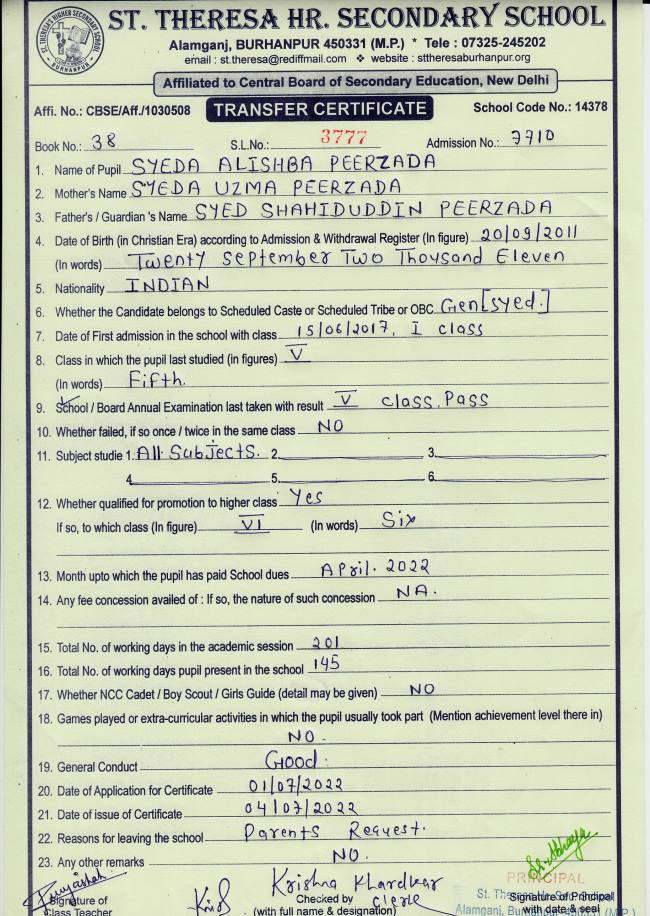 ST. THERESA HR. SECONDARY SCHOOL
ST. THERESA'S HIGHER SECONDARY SCHOOL
BURHANPUR
Alamganj, BURHANPUR 450331 (M.P.) * Tele : 07325-245202
email : st.theresa@rediffmail.com ❖ website : sttheresaburhanpur.org
Affiliated to Central Board of Secondary Education, New Delhi
Affi. No.: CBSE/Aff./1030508 TRANSFER CERTIFICATE School Code No.: 14378
Book No.: 38 S.L.No.: 3777 Admission No.: 7710
1. Name of Pupil SYEDA ALISHBA PEERZADA
2. Mother's Name SYEDA UZMA PEERZADA
3. Father's / Guardian 's Name SYED SHAHIDUDDIN PEERZADA
4. Date of Birth (in Christian Era) according to Admission & Withdrawal Register (In figure) 20/09/2011
(In words) Twenty September Two Thousand Eleven
5. Nationality INDIAN
6. Whether the Candidate belongs to Scheduled Caste or Scheduled Tribe or OBC Gen[syed.]
7. Date of First admission in the school with class 15/06/2017, I class
8. Class in which the pupil last studied (in figures) V
(In words) Fifth.
9. School / Board Annual Examination last taken with result V class, Pass
10. Whether failed, if so once / twice in the same class NO
11. Subject studie 1. All Subjects. 2. 3.
4. 5. 6.
12. Whether qualified for promotion to higher class Yes
If so, to which class (In figure) VI (In words) Six
13. Month upto which the pupil has paid School dues April. 2022
14. Any fee concession availed of : If so, the nature of such concession NA.
15. Total No. of working days in the academic session 201
16. Total No. of working days pupil present in the school 145
17. Whether NCC Cadet / Boy Scout / Girls Guide (detail may be given) NO
18. Games played or extra-curricular activities in which the pupil usually took part (Mention achievement level there in)
NO.
19. General Conduct Good.
20. Date of Application for Certificate 01/07/2022
21. Date of issue of Certificate 04/07/2022
22. Reasons for leaving the school Parents Request.
23. Any other remarks NO.
PRINCIPAL
Krishna Khardkar
Signature of Checked by Clerk Signature of Principal
Class Teacher (with full name & designation) with date & seal
Alamganj, BURHANPUR (M.P.)